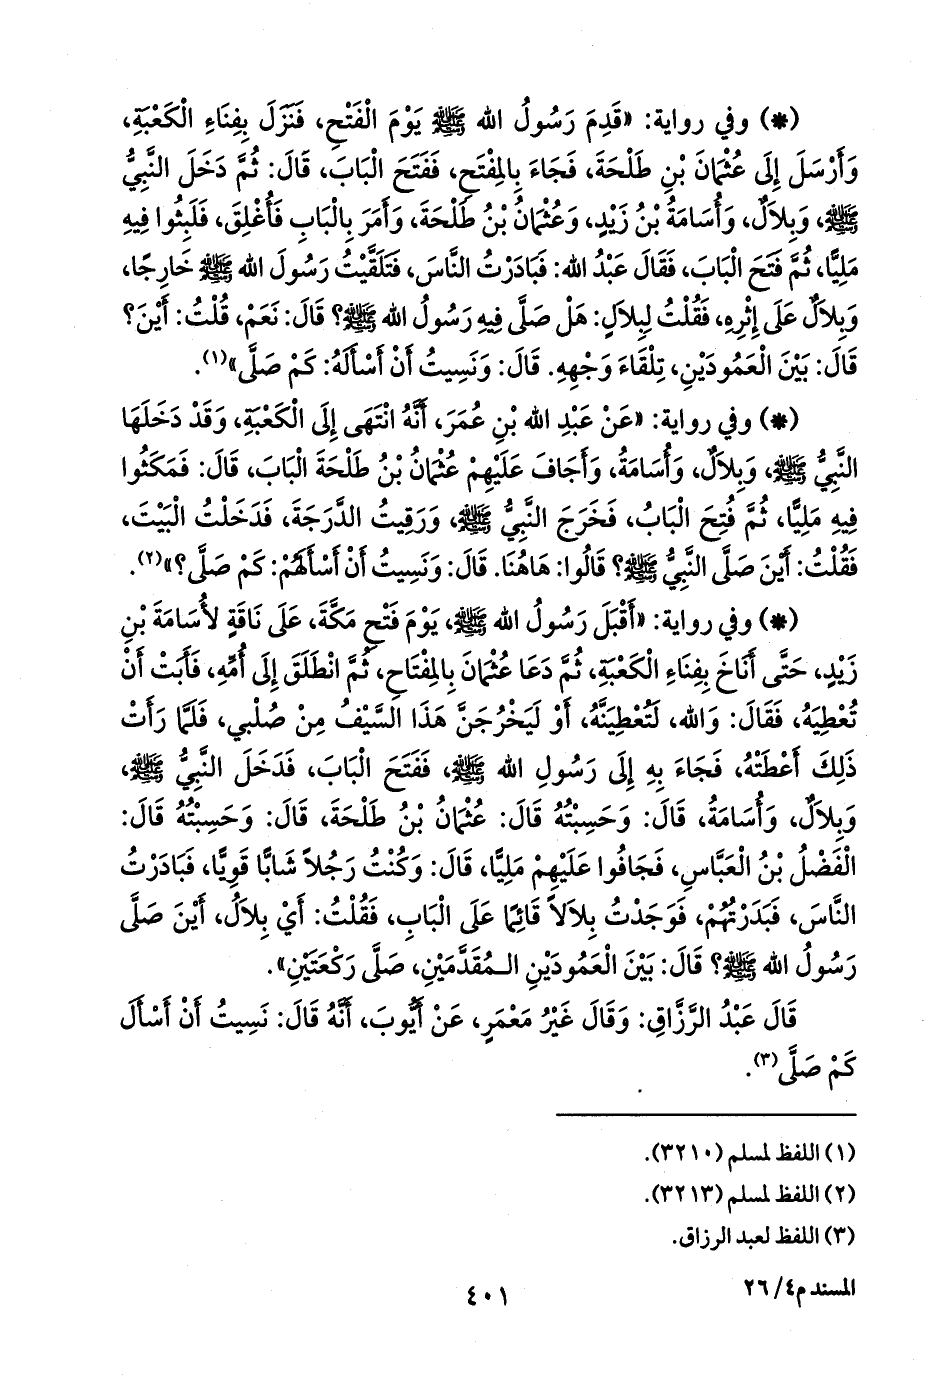 (*) وفي رواية: «قَدِمَ رَسُولُ الله ﷺ يَوْمَ الْفَتْحِ، فَنَزَلَ بِفِنَاءِ الْكَعْبَةِ،
وَأَرْسَلَ إِلَى عُثْمَانَ بْنِ طَلْحَةَ، فَجَاءَ بِالمِفْتَحِ، فَفَتَحَ الْبَابَ، قَالَ: ثُمَّ دَخَلَ النَّبِيُّ
ﷺ، وَبِلاَلٌ، وَأُسَامَةُ بْنُ زَيْدٍ، وَعُثْمَانُ بْنُ طَلْحَةَ، وَأَمَرَ بِالْبَابِ فَأُغْلِقَ، فَلَبِثُوا فِيهِ
مَلِيًّا، ثُمَّ فَتَحَ الْبَابَ، فَقَالَ عَبْدُ الله: فَبَادَرْتُ النَّاسَ، فَتَلَقَّيْتُ رَسُولَ الله ﷺ خَارِجًا،
وَبِلاَلٌ عَلَى إِثْرِهِ، فَقُلْتُ لِبِلاَلٍ: هَلْ صَلَّى فِيهِ رَسُولُ الله ﷺ؟ قَالَ: نَعَمْ، قُلْتُ: أَيْنَ؟
قَالَ: بَيْنَ الْعَمُودَيْنِ، تِلْقَاءَ وَجْهِهِ. قَالَ: وَنَسِيتُ أَنْ أَسْأَلَهُ: كَمْ صَلَّى»(١).
(*) وفي رواية: «عَنْ عَبْدِ الله بْنِ عُمَرَ، أَنَّهُ انْتَهَى إِلَى الْكَعْبَةِ، وَقَدْ دَخَلَهَا
النَّبِيُّ ﷺ، وَبِلاَلٌ، وَأُسَامَةُ، وَأَجَافَ عَلَيْهِمْ عُثْمَانُ بْنُ طَلْحَةَ الْبَابَ، قَالَ: فَمَكَثُوا
فِيهِ مَلِيًّا، ثُمَّ فُتِحَ الْبَابُ، فَخَرَجَ النَّبِيُّ ﷺ، وَرَقِيتُ الدَّرَجَةَ، فَدَخَلْتُ الْبَيْتَ،
فَقُلْتُ: أَيْنَ صَلَّى النَّبِيُّ ﷺ؟ قَالُوا: هَاهُنَا. قَالَ: وَنَسِيتُ أَنْ أَسْأَلَهُمْ: كَمْ صَلَّى؟»(٢).
(*) وفي رواية: «أَقْبَلَ رَسُولُ الله ﷺ، يَوْمَ فَتْحِ مَكَّةَ، عَلَى نَاقَةٍ لأُسَامَةَ بْنِ
زَيْدٍ، حَتَّى أَنَاخَ بِفِنَاءِ الْكَعْبَةِ، ثُمَّ دَعَا عُثْمَانَ بِالمِفْتَاحِ، ثُمَّ انْطَلَقَ إِلَى أُمِّهِ، فَأَبَتْ أَنْ
تُعْطِيَهُ، فَقَالَ: وَالله، لَتُعْطِيَنَّهُ، أَوْ لَيَخْرُجَنَّ هَذَا السَّيْفُ مِنْ صُلْبِي، فَلَمَّا رَأَتْ
ذَلِكَ أَعْطَتْهُ، فَجَاءَ بِهِ إِلَى رَسُولِ الله ﷺ، فَفَتَحَ الْبَابَ، فَدَخَلَ النَّبِيُّ ﷺ،
وَبِلاَلٌ، وَأُسَامَةُ، قَالَ: وَحَسِبْتُهُ قَالَ: عُثْمَانُ بْنُ طَلْحَةَ، قَالَ: وَحَسِبْتُهُ قَالَ:
الْفَضْلُ بْنُ الْعَبَّاسِ، فَجَافُوا عَلَيْهِمْ مَلِيًّا، قَالَ: وَكُنْتُ رَجُلاً شَابًّا قَوِيًّا، فَبَادَرْتُ
النَّاسَ، فَبَدَرْتُهُمْ، فَوَجَدْتُ بِلاَلاً قَائِمًا عَلَى الْبَابِ، فَقُلْتُ: أَيْ بِلاَلُ، أَيْنَ صَلَّى
رَسُولُ الله ﷺ؟ قَالَ: بَيْنَ الْعَمُودَيْنِ الـمُقَدَّمَيْنِ، صَلَّى رَكْعَتَيْنِ».
قَالَ عَبْدُ الرَّزَّاقِ: وَقَالَ غَيْرُ مَعْمَرٍ، عَنْ أَيُّوبَ، أَنَّهُ قَالَ: نَسِيتُ أَنْ أَسْأَلَ
كَمْ صَلَّى(٣).
(١) اللفظ لمسلم (٣٢١٠).
(٢) اللفظ لمسلم (٣٢١٣).
(٣) اللفظ لعبد الرزاق.
المسند م٤/ ٢٦
٤٠١